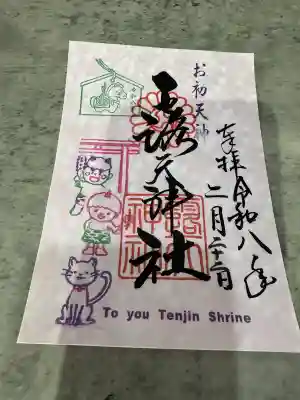 奉拝 令和八年
二月二十二日
お初天神
露天神社
To you Tenjin Shrine